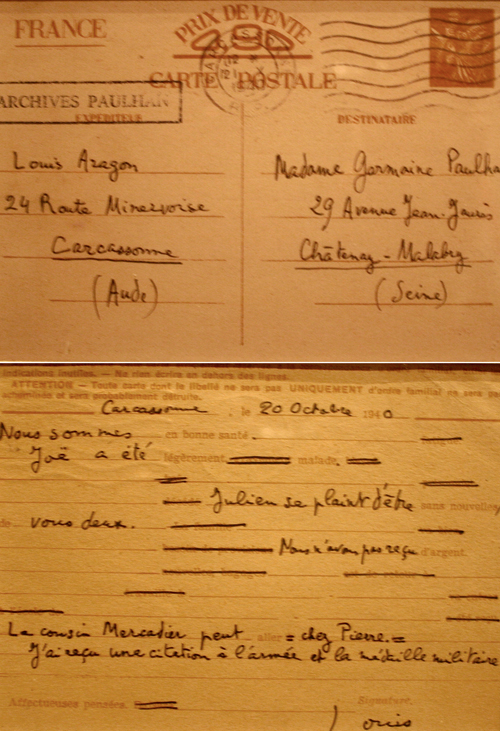 FRANCE
PRIX DE VENTE
CARTE POSTALE
ARCHIVES PAULHAN
EXPÉDITEUR
DESTINATAIRE
Louis Aragon
24 Route Minervoise
Carcassonne
(Aude)
Madame Germaine Paulha
29 Avenue Jean-Jaurès
Châtenay-Malabry
(Seine)
indications inutiles. — Ne rien écrire en dehors des lignes.
ATTENTION — Toute carte dont le libellé ne sera pas UNIQUEMENT d'ordre familial ne sera pas
acheminée et sera probablement détruite.
Carcassonne, le 20 Octobre 1940
Nous sommes en bonne santé.
Joë a été légèrement malade.
Julien se plaint d'être sans nouvelles
de vous deux.
Nous n'avons pas reçu d'argent.
La cousin Mercadier peut aller = chez Pierre. =
J'ai reçu une citation à l'armée et la médaille militaire
Affectueuses pensées.
Signature.
Louis